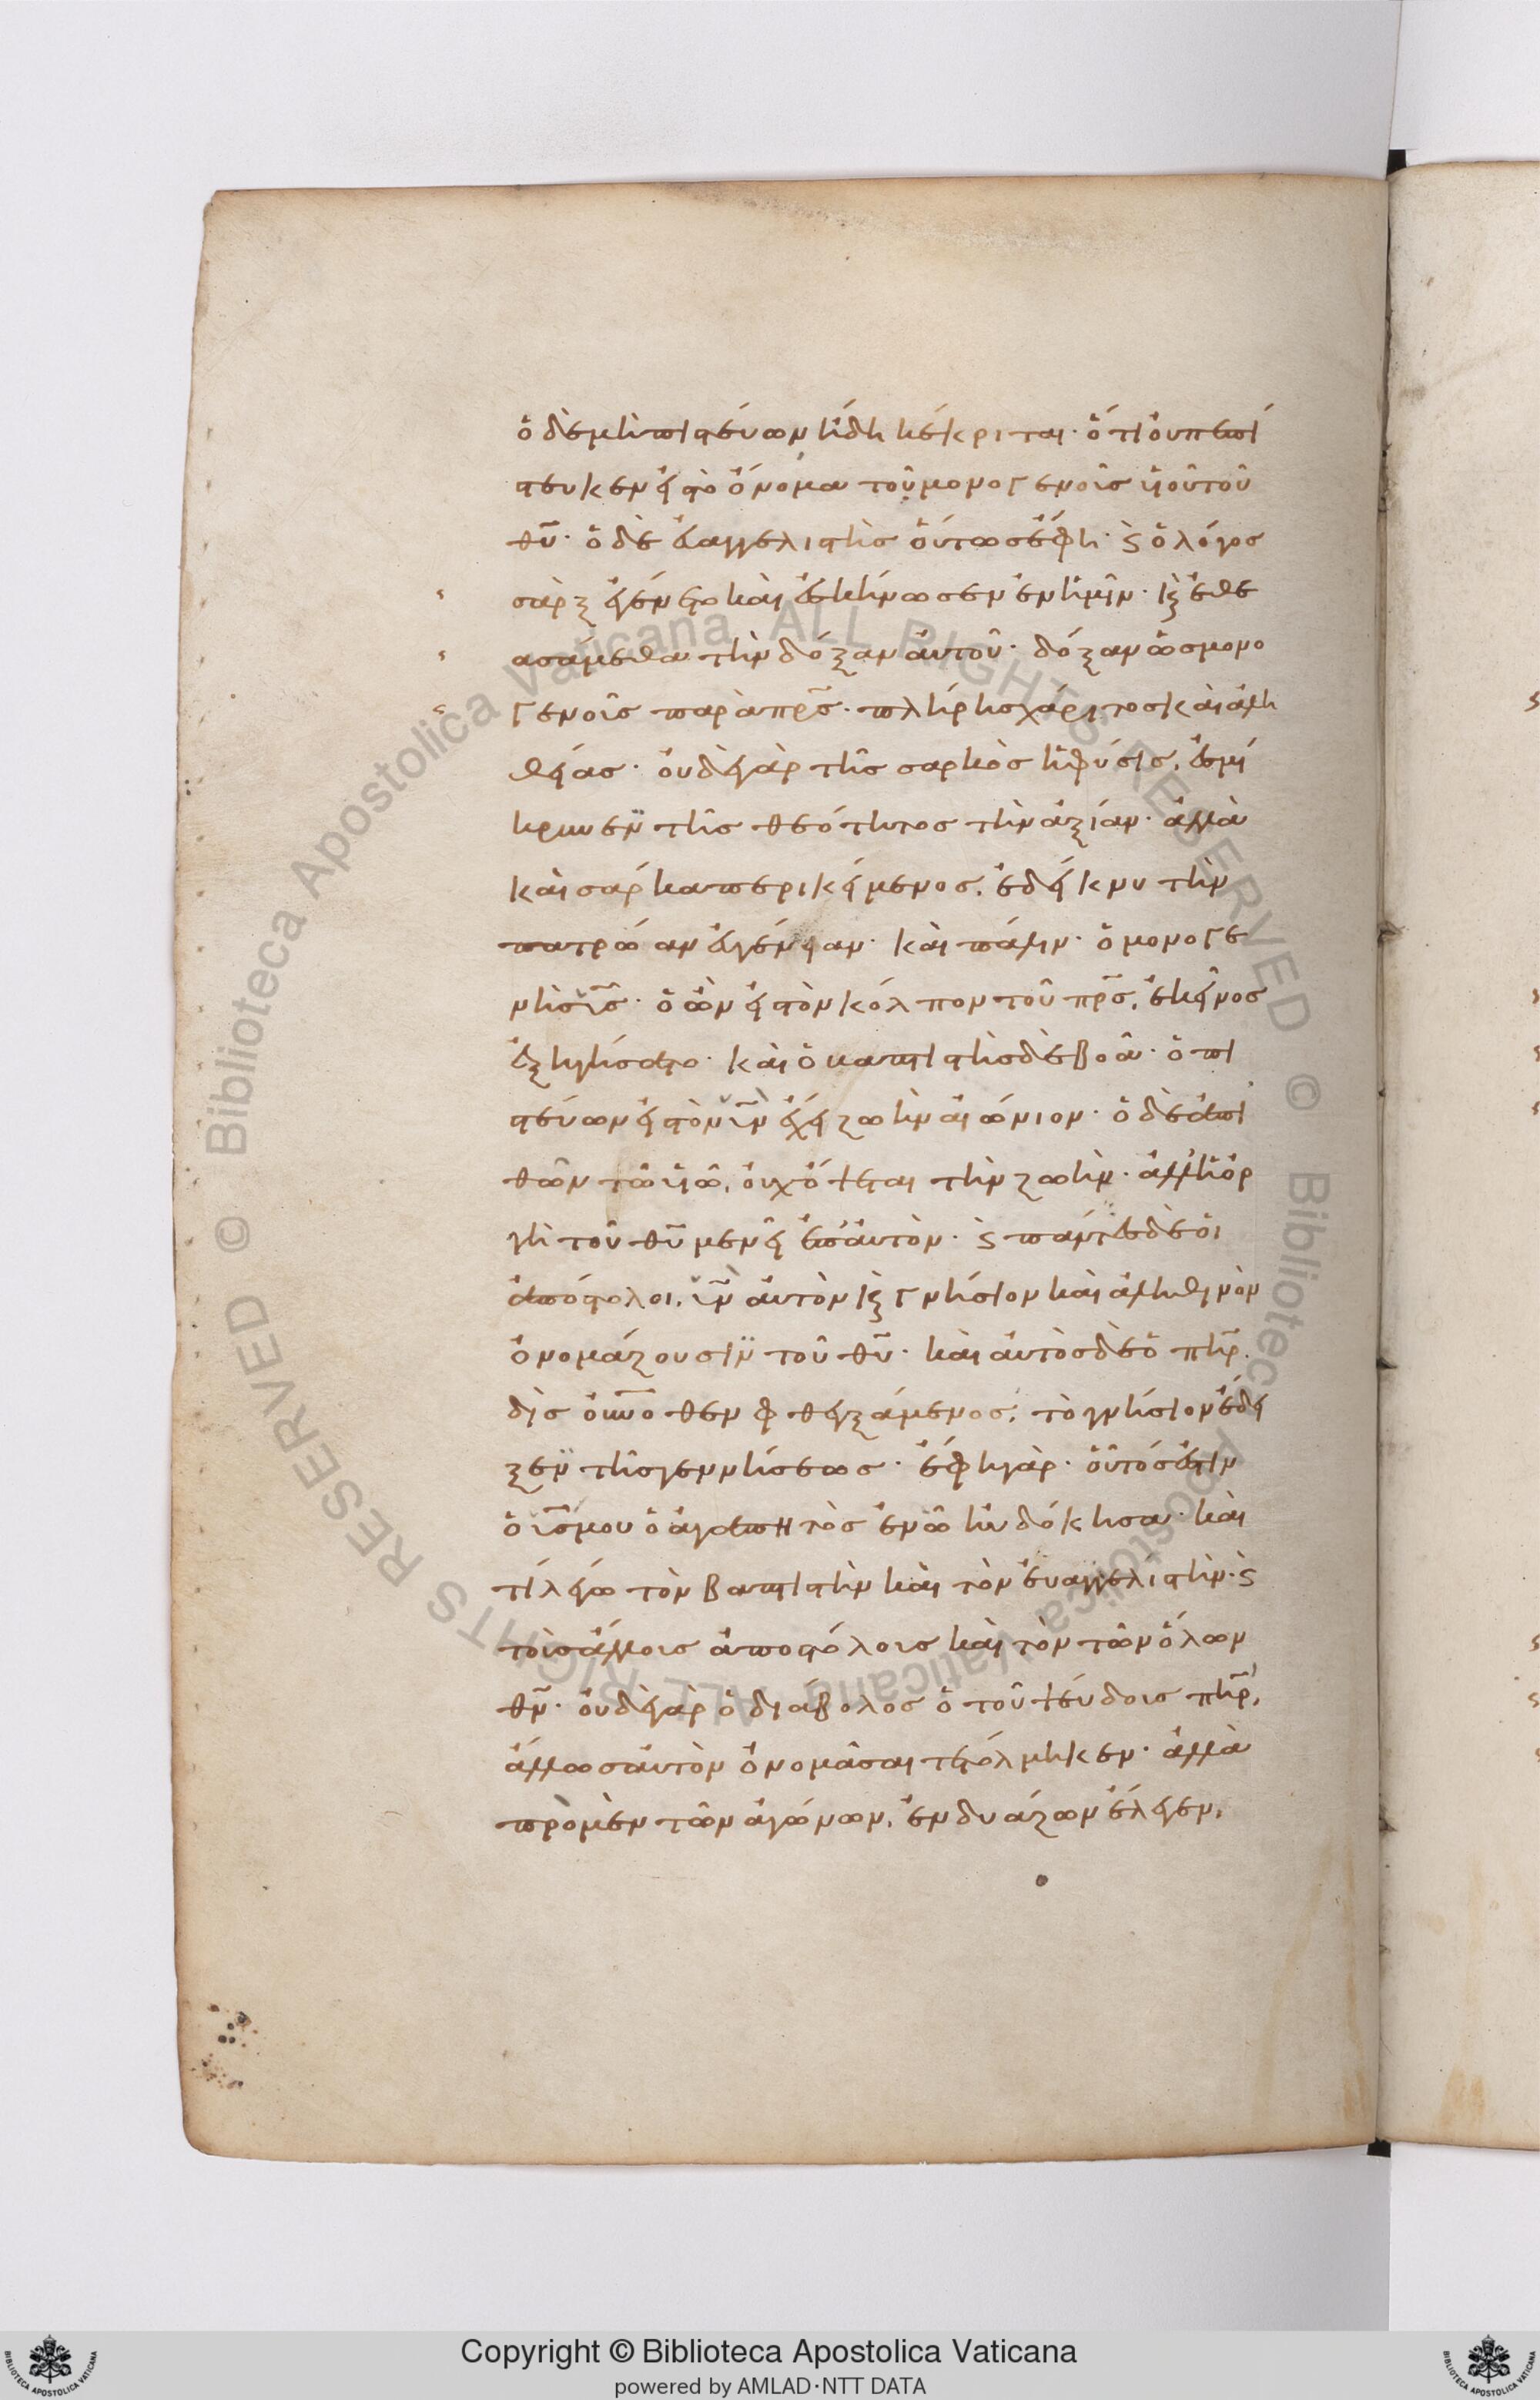 ὁ δὲ μὴ πιστεύων ἤδη κέκριται· ὅτι οὐ πεπί
στευκεν εἰς τὸ ὄνομα τοῦ μονογενοῦς υἱοῦ τοῦ
θυ̅· ὁ δὲ εὐαγγελιστὴς οὕτως ἔφη· ϛ ὁ λόγος
σὰρξ ἐγένετο καὶ ἐσκήνωσεν ἐν ἡμῖν· κ ἐθε
ασάμεθα τὴν δόξαν αὐτοῦ· δόξαν ὡς μονο
γενοῦς παρὰ πρ̅ς· πλήρης χάριτος καὶ ἀλη
θείας· οὐδὲ γὰρ τῆς σαρκὸς ἡ φύσις, ἐσμί
κρυνεν τῆς θεότητος τὴν ἀξίαν· ἀλλὰ
καὶ σάρκα περικείμενος, ἐδείκνυ τὴν
πατρώαν εὐγένειαν· καὶ πάλιν· ὁ μονογε
νὴς υι̅ς· ὁ ὢν εἰς τὸν κόλπον τοῦ πρ̅ς, ἐκεῖνος
ἐξηγήσατο· καὶ ὁ βαπτιστὴς δὲ βοᾷ· ὁ πι
στεύων εἰς τὸν υι̅ν ἔχει ζωὴν αἰώνιον· ὁ δὲ ἀπει
θῶν τῷ υἱῷ, οὐκ ὄψεται τὴν ζωήν· ἀλλ' ἡ ὀρ
γὴ τοῦ θυ̅ μενεῖ ἐπ' αὐτόν· ϛ πάντες δὲ οἱ
ἀπόστολοι, υι̅ν αὐτὸν κ γνήσιον καὶ ἀληθινὸν
ὀνομάζουσιν τοῦ θυ̅· καὶ αὐτὸς δὲ ὁ πη̅ρ
δὶς οὐ̅νοθεν φθεγξάμενος, τὸ γνήσιον ἔδει
ξεν τῆς γεννήσεως· ἔφη γὰρ· οὗτός ἐστιν
ὁ υι̅ς μου ὁ ἀγαπητὸς ἐν ᾧ ηὐδόκησα· καὶ
τί λέγω τὸν βαπτιστὴν καὶ τὸν εὐαγγελιστὴν· ϛ
τοὺς ἄλλους ἀποστόλους καὶ τὸν τῶν ὅλων
θν̅· οὐδὲ γὰρ ὁ διάβολος ὁ τοῦ ψεύδους πη̅ρ,
ἄλλως αὐτὸν ὀνομάσαι τετόλμηκεν· ἀλλὰ
πρὸ μὲν τῶν ἀγώνων, ἐνδυάζων ἔλεγεν,
Copyright © Biblioteca Apostolica Vaticana
powered by AMLAD·NTT DATA